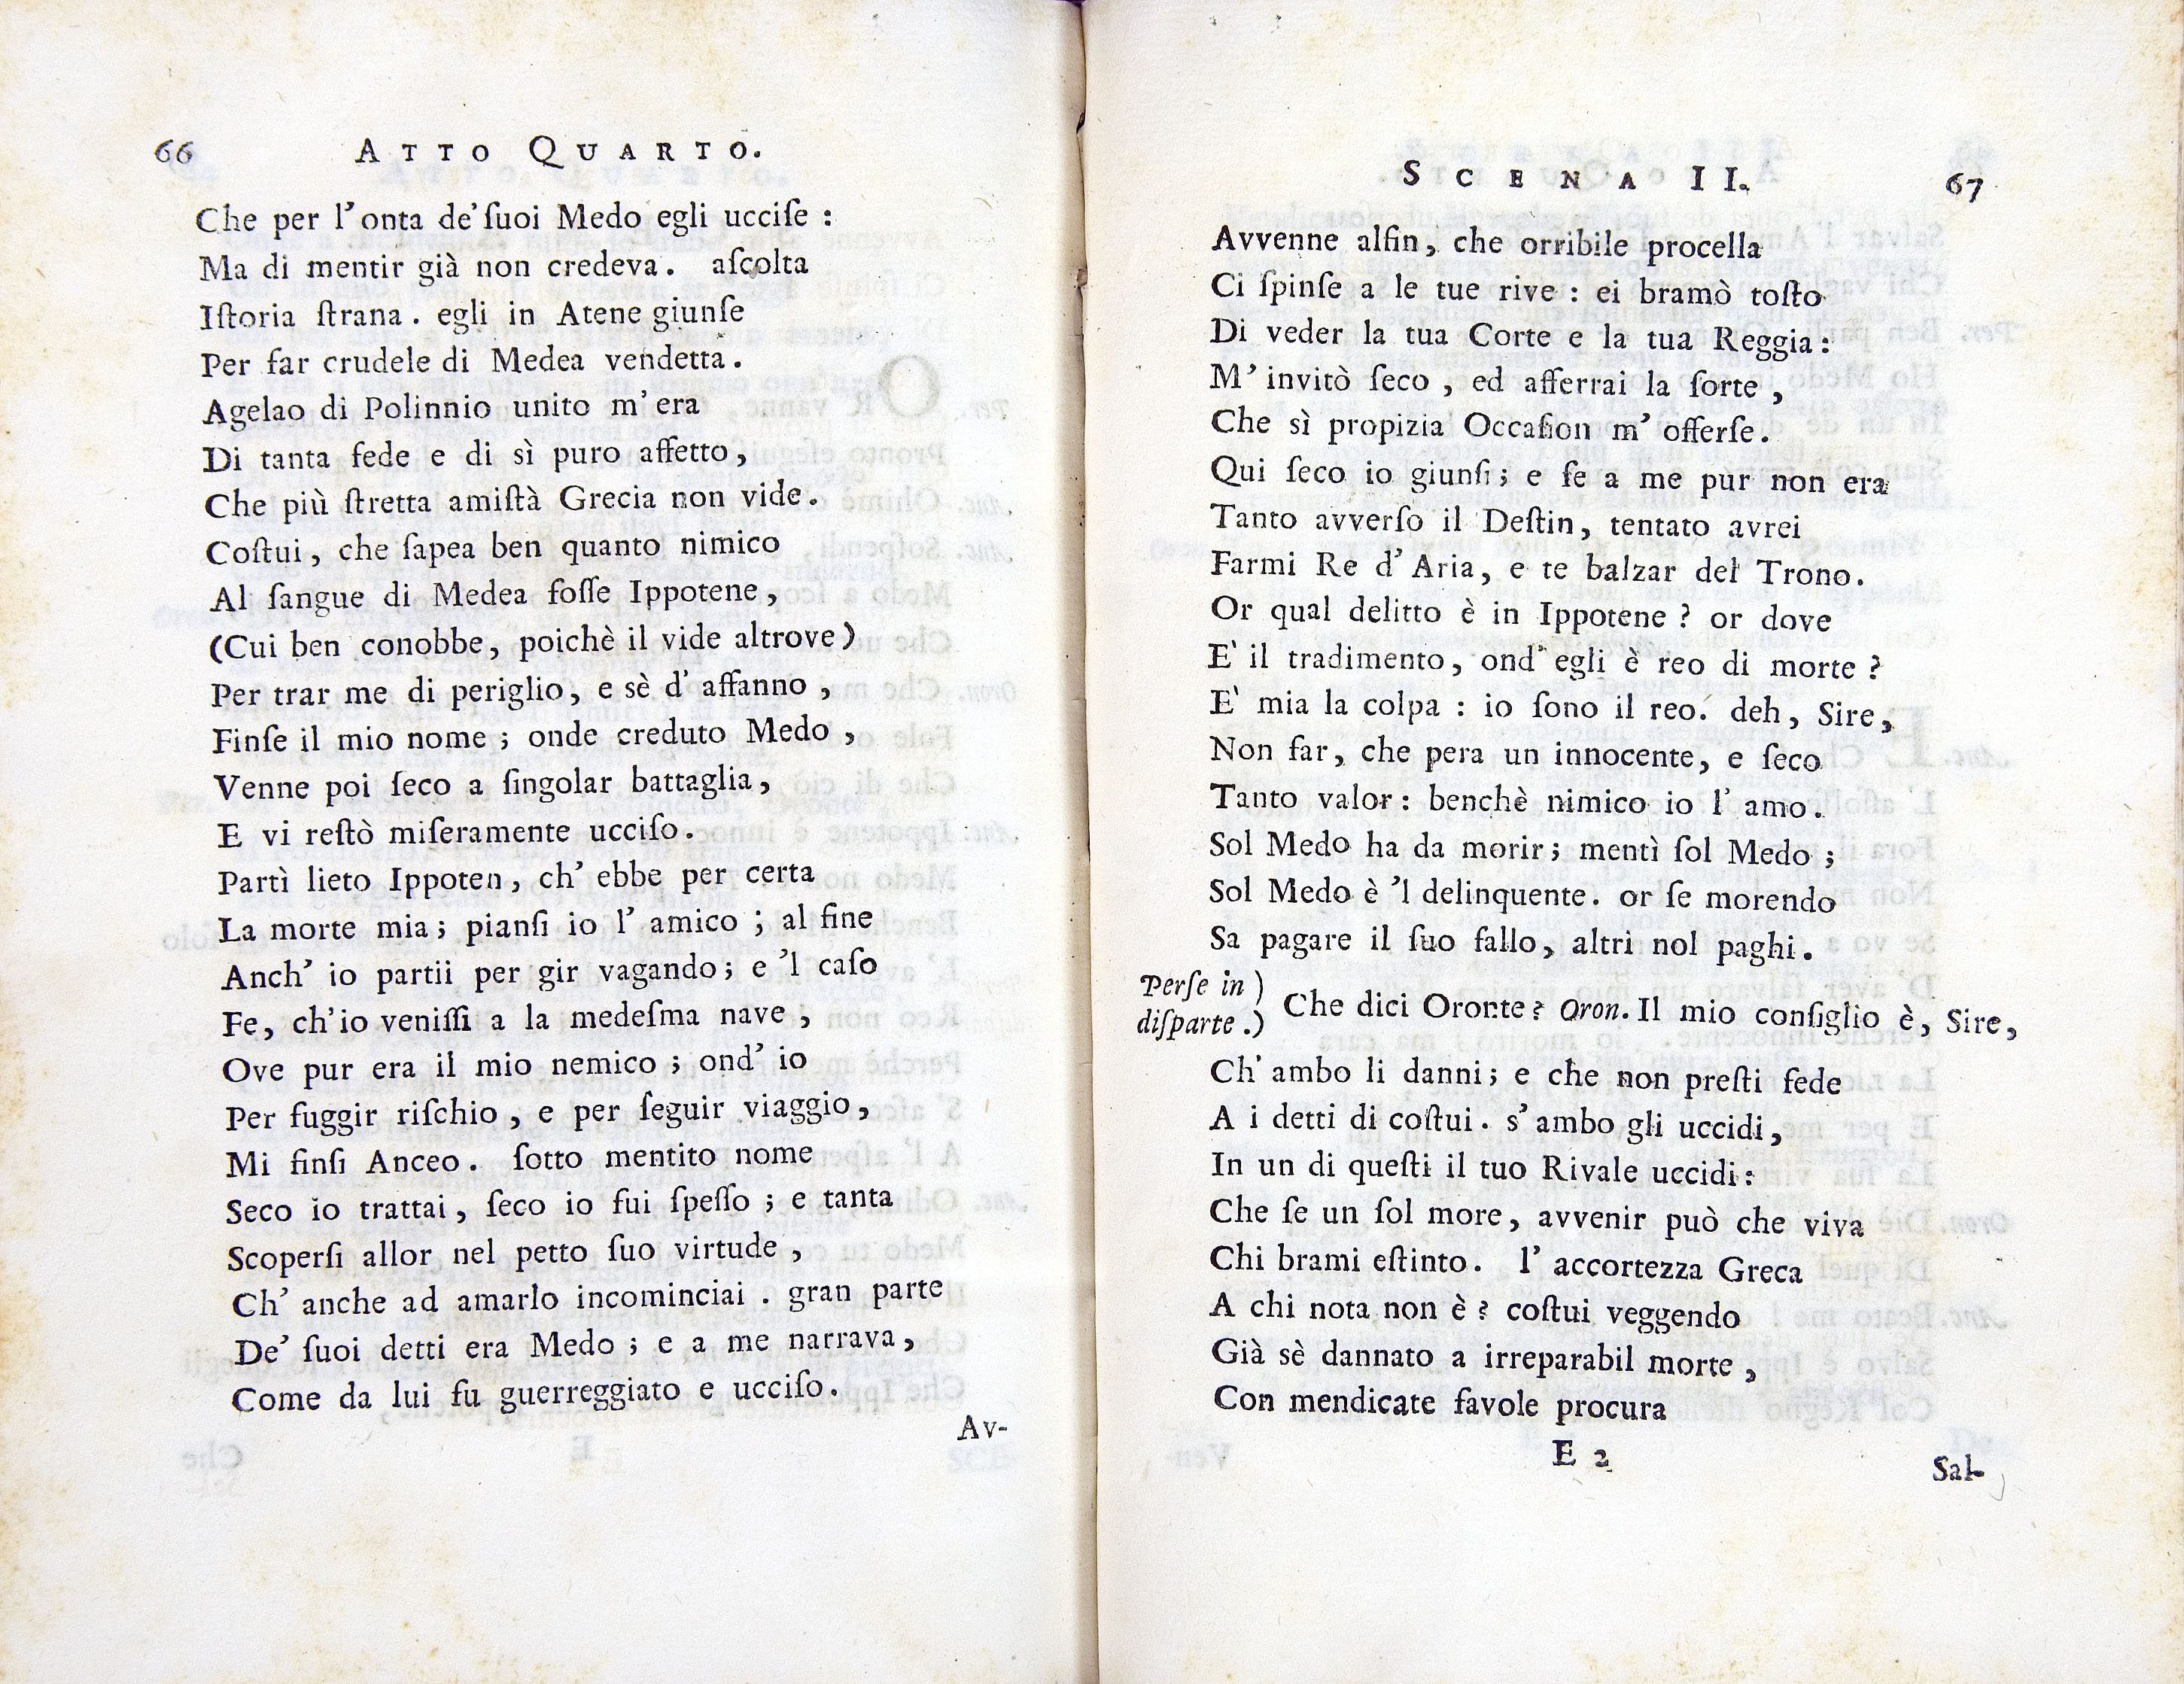 66 ATTO QUARTO.
Che per l'onta de'ſuoi Medo egli ucciſe :
Ma di mentir già non credeva. aſcolta
Iſtoria ſtrana. egli in Atene giunſe
Per far crudele di Medea vendetta.
Agelao di Polinnio unito m'era
Di tanta fede e di sì puro affetto,
Che più ſtretta amiſtà Grecia non vide.
Coſtui, che ſapea ben quanto nimico
Al ſangue di Medea foſſe Ippotene,
(Cui ben conobbe, poichè il vide altrove)
Per trar me di periglio, e sè d'affanno,
Finſe il mio nome; onde creduto Medo,
Venne poi ſeco a ſingolar battaglia,
E vi reſtò miſeramente ucciſo.
Partì lieto Ippoten, ch'ebbe per certa
La morte mia; pianſi io l'amico; al fine
Anch'io partii per gir vagando; e 'l caſo
Fe, ch'io veniſſi a la medeſma nave,
Ove pur era il mio nemico; ond'io
Per fuggir riſchio, e per ſeguir viaggio,
Mi finſi Anceo. ſotto mentito nome
Seco io trattai, ſeco io fui ſpeſſo; e tanta
Scoperſi allor nel petto ſuo virtude,
Ch'anche ad amarlo incominciai. gran parte
De' ſuoi detti era Medo; e a me narrava,
Come da lui fu guerreggiato e ucciſo.
Av-
SCENA II. 67
Avvenne alfin, che orribile procella
Ci ſpinſe a le tue rive : ei bramò toſto
Di veder la tua Corte e la tua Reggia:
M'invitò ſeco, ed afferrai la ſorte,
Che sì propizia Occaſion m'offerſe.
Qui ſeco io giunſi; e ſe a me pur non era
Tanto avverſo il Deſtin, tentato avrei
Farmi Re d'Aria, e te balzar del Trono.
Or qual delitto è in Ippotene? or dove
E' il tradimento, ond'egli è reo di morte?
E' mia la colpa : io ſono il reo. deh, Sire,
Non far, che pera un innocente, e ſeco
Tanto valor: benchè nimico io l'amo.
Sol Medo ha da morir; mentì ſol Medo;
Sol Medo è 'l delinquente. or ſe morendo
Sa pagare il ſuo fallo, altri nol paghi.
Perſe in diſparte.) Che dici Oronte? Oron. Il mio conſiglio è, Sire,
Ch'ambo li danni; e che non preſti fede
A i detti di coſtui. s'ambo gli uccidi,
In un di queſti il tuo Rivale uccidi:
Che ſe un ſol more, avvenir può che viva
Chi brami eſtinto. l'accortezza Greca
A chi nota non è? coſtui veggendo
Già sè dannato a irreparabil morte,
Con mendicate favole procura
E 2
Sal-